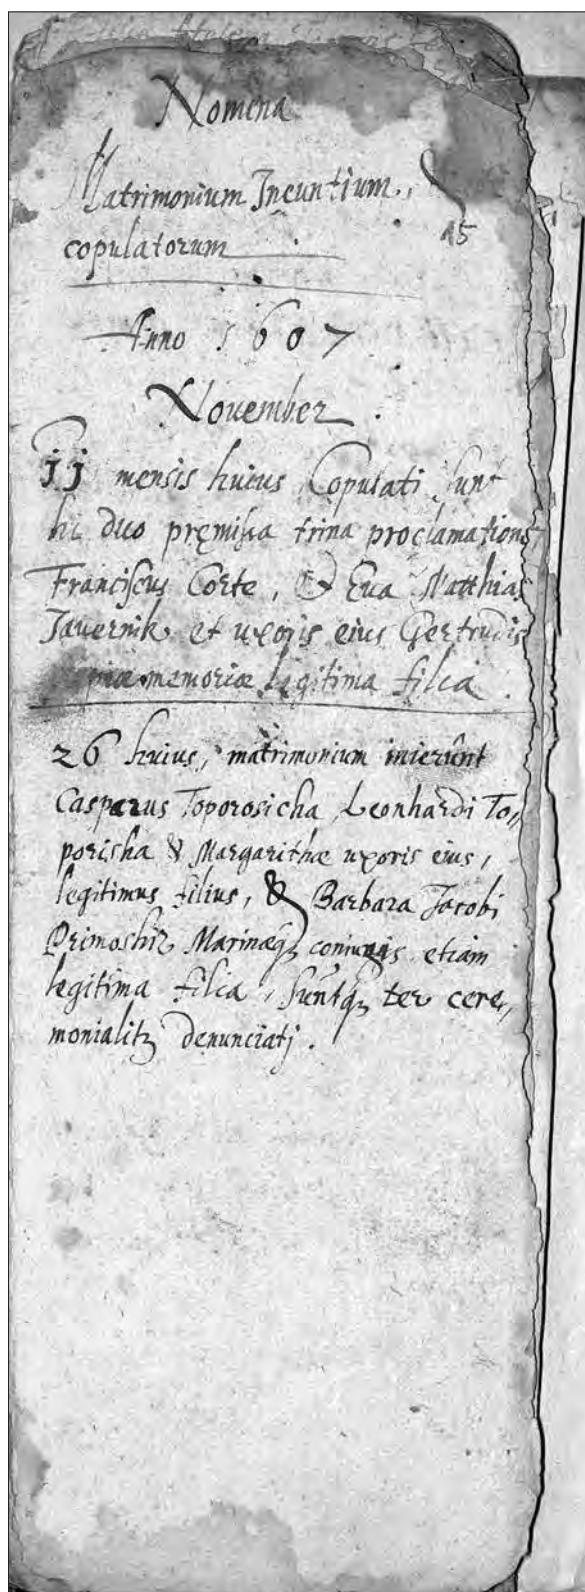 Nomina
Matrimonium Ineuntium,
15
copulatorum
Anno 1607
November
11 mensis huius Copulati sunt
hi duo pręmissa trina proclamatione
Franciscus Corte, & Eua Matthias
Jauernik et uxoris eius Gertrudis
piæ memoriæ legitima filia.
26 huius, matrimonium inierunt
Casparus Toporosicha, Leonhardi To„
porisha & Margarithæ uxoris eius,
legitimus filius, & Barbara Jacobi
Primoshiz Marinæq3 coniugis etiam
legitima filia, suntq3 ter cere„
monialit3 denunciatj.